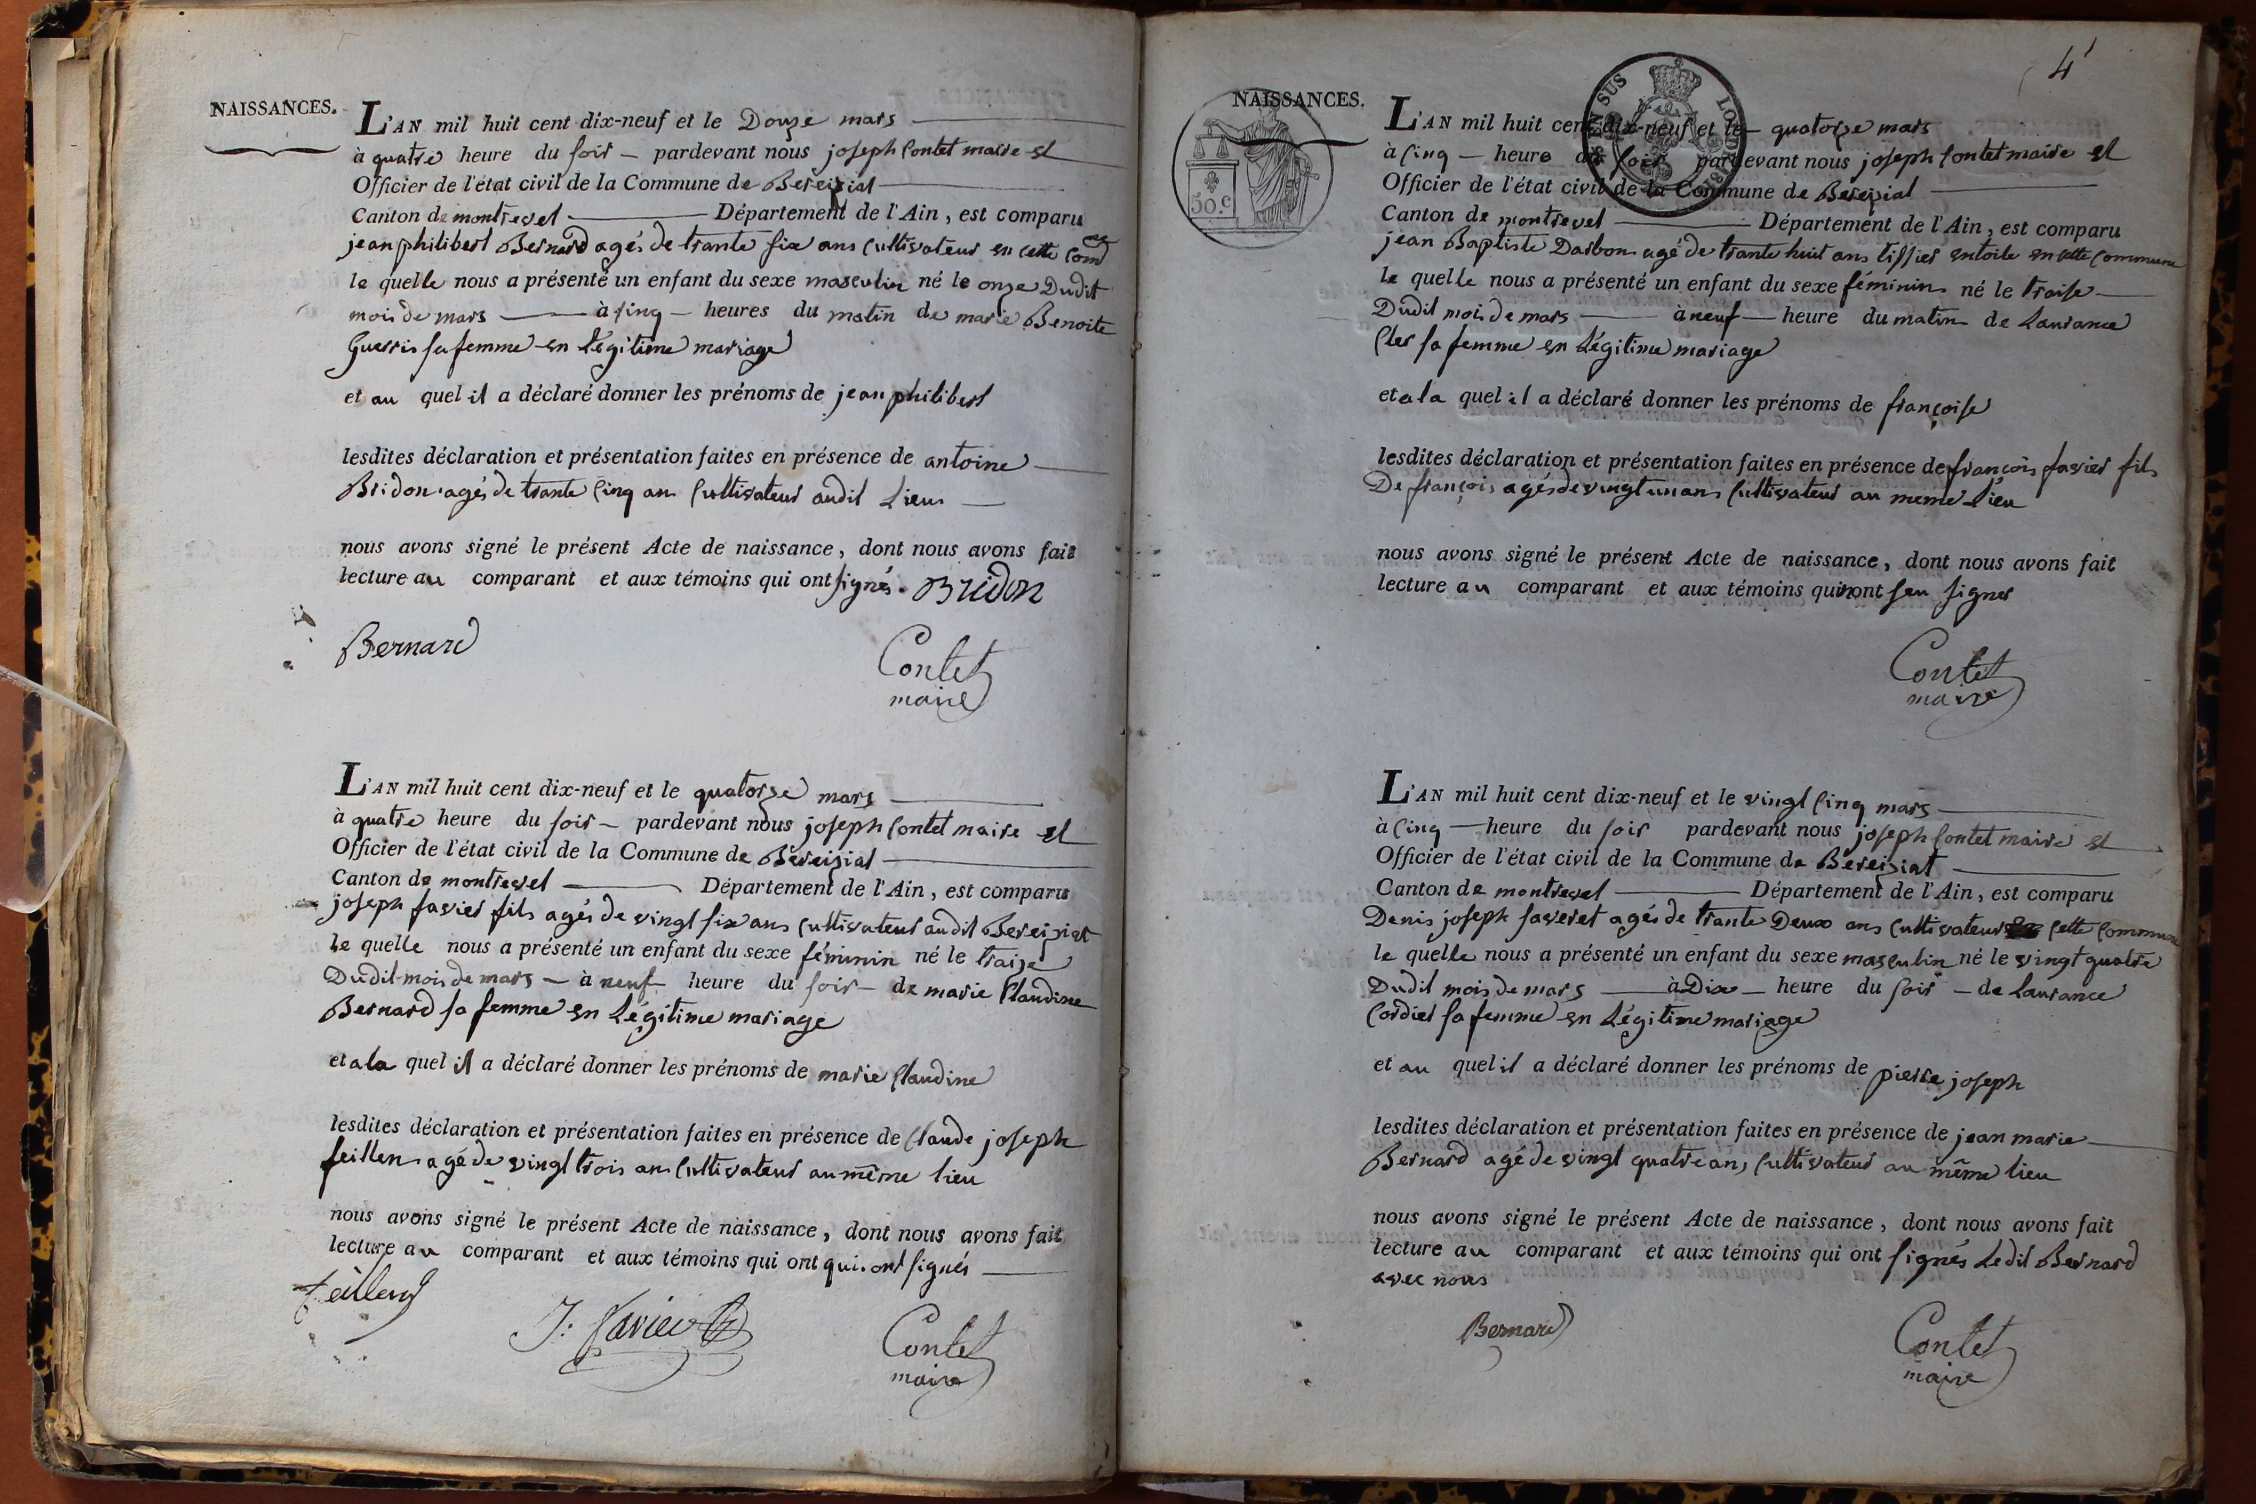 NAISSANCES.
L'AN mil huit cent dix-neuf et le Douze mars
à quatre heure du soir pardevant nous joseph Contet maire et
Officier de l'état civil de la Commune de Bereiziat
Canton de montrevel Département de l'Ain, est comparu
jean philibert Bernard agés de trante six ans Cultivateur en cette com
le quelle nous a présenté un enfant du sexe masculin né le onze Dudit
mois de mars à cinq heures du matin de marie Benoite
Guerrin sa femme en Légitime mariage
et au quel il a déclaré donner les prénoms de jean philibert
lesdites déclaration et présentation faites en présence de antoine
Bridon agés de trante Cinq ans Cultivateur audit Lieu
nous avons signé le présent Acte de naissance, dont nous avons fait
lecture au comparant et aux témoins qui ont signés. Bridon
Bernard
Contet
maire
L'AN mil huit cent dix-neuf et le quatorze mars
à quatre heure du soir pardevant nous joseph Contet maire et
Officier de l'état civil de la Commune de Béreiziat
Canton de montrevel Département de l'Ain, est comparu
joseph favier fils agés de vingt six ans Cultivateur audit Bereiziat
le quelle nous a présenté un enfant du sexe féminin né le traize
Dudit mois de mars à neuf heure du soir de marie Claudine
Bernard sa femme en Légitime mariage
et a la quel il a déclaré donner les prénoms de marie Claudine
lesdites déclaration et présentation faites en présence de Claude joseph
feillens agé de vingt trois ans Cultivateur au même lieu
nous avons signé le présent Acte de naissance, dont nous avons fait
lecture au comparant et aux témoins qui ont qui ont signés
feillens
J: favier
Contet
maire
4
NAISSANCES.
50.c
SUS
L'AN mil huit cent dix-neuf et le quatorze mars
à Cinq heure du soir pardevant nous joseph Contet maire et
Officier de l'état civil de la Commune de Bereiziat
Canton de montrevel Département de l'Ain, est comparu
jean Baptiste Darbon agé de trante huit ans tissier en toile en cette Commune
le quelle nous a présenté un enfant du sexe féminin né le traise
Dudit mois de mars à neuf heure du matin de Laurance
Cler sa femme en Légitime mariage
et a la quel il a déclaré donner les prénoms de françoise
lesdites déclaration et présentation faites en présence de françois favier fils
De françois agés de vingt un ans Cultivateur au meme Lieu
nous avons signé le présent Acte de naissance, dont nous avons fait
lecture au comparant et aux témoins qui n'ont seu signer
Contet
maire
L'AN mil huit cent dix-neuf et le vingt Cinq mars
à Cinq heure du soir pardevant nous joseph Contet maire et
Officier de l'état civil de la Commune de Béreiziat
Canton de montrevel Département de l'Ain, est comparu
Denis joseph faveret agés de trante Deux ans Cultivateur cette Commune
le quelle nous a présenté un enfant du sexe masculin né le vingt quatre
Dudit mois de mars à Dix heure du soir de Laurance
Cordier sa femme en Légitime mariage
et au quel il a déclaré donner les prénoms de pierre joseph
lesdites déclaration et présentation faites en présence de jean marie
Bernard agé de vingt quatre ans Cultivateur au même lieu
nous avons signé le présent Acte de naissance, dont nous avons fait
lecture au comparant et aux témoins qui ont signés Ledit Bernard
avec nous
Bernard
Contet
maire